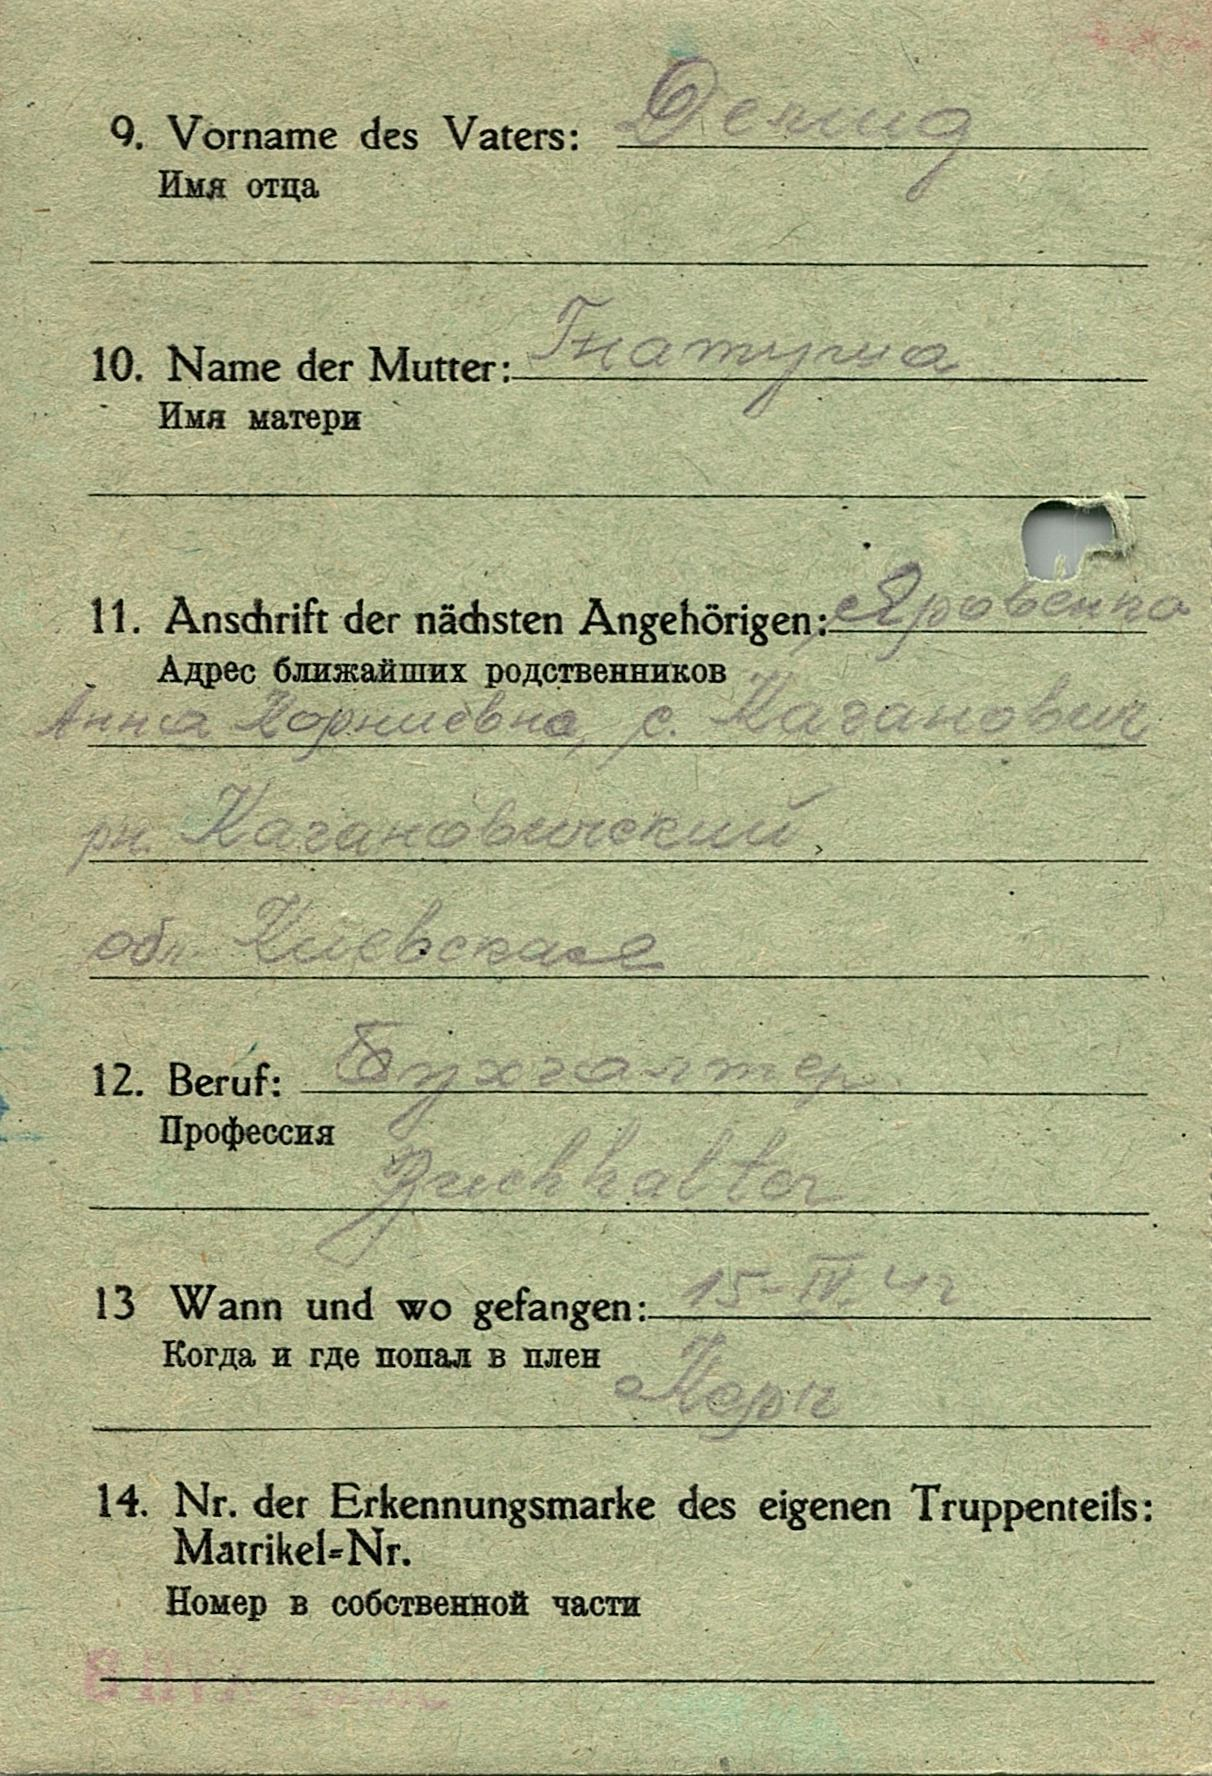 9. Vorname des Vaters: Демид
Имя отца
10. Name der Mutter: Гнатуша
Имя матери
11. Anschrift der nächsten Angehörigen: Яровенко
Адрес ближайших родственников
Анна Корниевна, с. Каганович
рн. Кагановичский,
обл. Киевская
12. Beruf: Бухгалтер
Профессия
Buchhalter
13 Wann und wo gefangen: 15-IV. 42
Когда и где попал в плен
Керч
14. Nr. der Erkennungsmarke des eigenen Truppenteils:
Matrikel=Nr.
Номер в собственной части